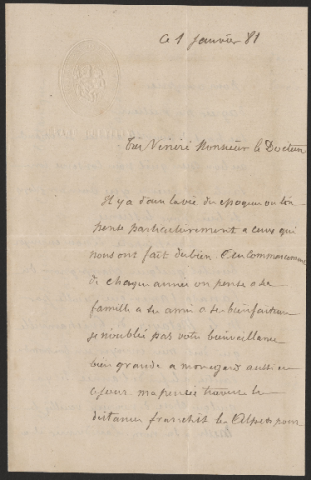 Ce 1 Janvier 81
Très Vénéré Monsieur le Docteur
Il y a dans la vie des époques ou l'on
pense particulièrement a ceux qui
nous ont fait du bien. Au Commencement
de chaque année on pense a sa
famille a ses amis a ses bienfaiteurs
je n'oublie pas votre bienveillance
bien grande a mon egard aussi en
ce jour ma pensée traverse les
distances franchit les Alpes pour